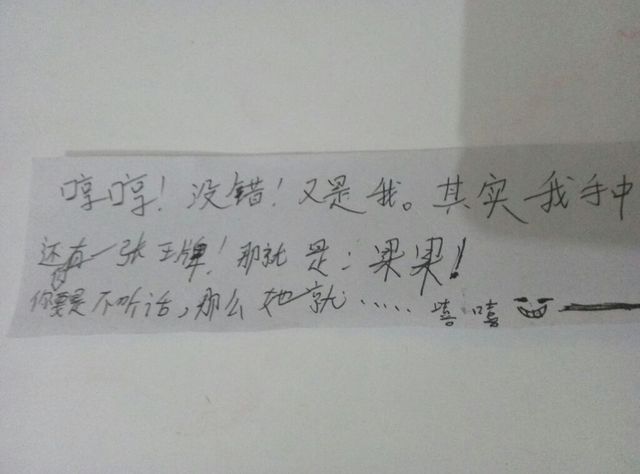 哼哼！没错！又是我。其实我手中
还有一张王牌！那就是：果果！
你要是不听话，那么她就……嘻嘻